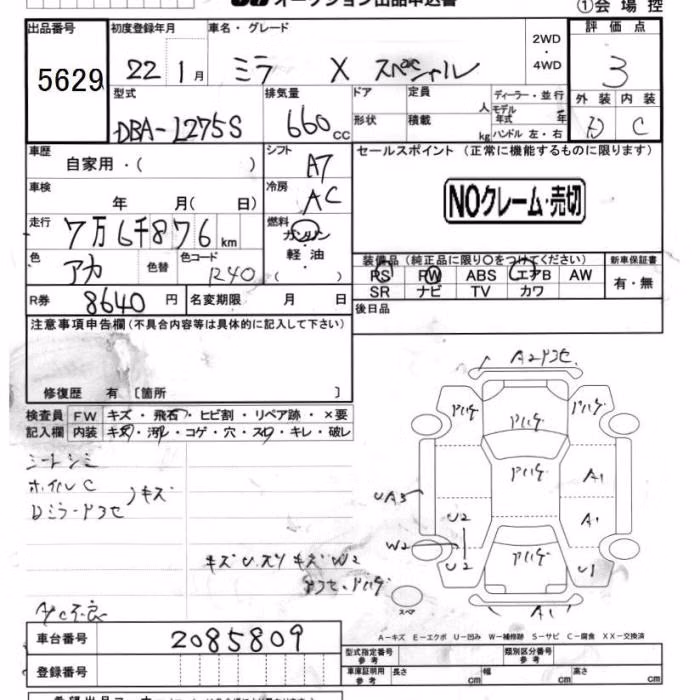 オークション出品申込書
①会場控
出品番号 初度登録年月 車名・グレード 2WD・4WD 評価点
5629 22年 1月 ミラ X スペシャル 3
型式 排気量 ドア 定員 人 ディーラー・並行 外装 内装
DBA-L275S 660cc 形状 積載 kg モデル年式 年 ハンドル 左・右 D C
車歴 シフト セールスポイント (正常に機能するものに限ります)
自家用・( ) A7
車検 年 月( 日) 冷房 AC NOクレーム・売切
走行 7万6千876km 燃料 ガソリン
色 アカ 色替 色コード R40 軽油 ( )
装備品 (純正品に限り○をつけてください) 新車保証書
PS PW ABS エアB AW 有・無
SR ナビ TV カワ
R券 8640円 名変期限 月 日
後日品
注意事項申告欄(不具合内容等は具体的に記入して下さい)
修復歴 有 〔箇所 〕
検査員 FW キズ・飛石・ヒビ割・リペア跡・×要
記入欄 内装 キズ・汚れ・コゲ・穴・スレ・キレ・破レ
シートシミ
ホイルC キズ
Dミラードアセ
キズU.スリキズW2
アセ.ハゲ
A/C不良
A2アセ
アハゲ アハゲ アハゲ
アハゲ A1
UA3 U2 A1
W2 U2 アハゲ U1
スペア A1
A-キズ E-エクボ U-凹み W-補修跡 S-サビ C-腐食 XX-交換済
車台番号 2085809
登録番号
型式指定番号 参考 類別区分番号 参考
車庫証明用 参考 長さ cm 幅 cm 高さ cm